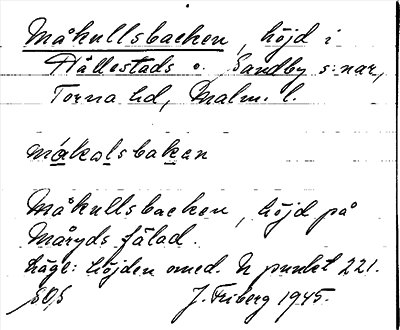 Måkullsbacken, höjd i
Hällestads o. Sandby s:nar,
Torna hd, Malm. l.
måkolsbakan
Måkullsbacken, höjd på
Måryds fälad.
Läge: höjden omed. N punkt 221.
J. Friberg 1945.